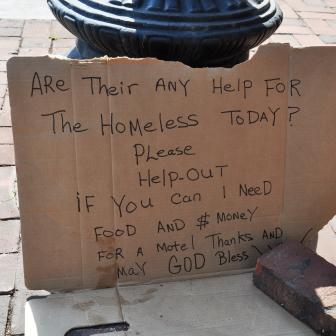 ARe Their ANY Help FoR
The HoMeless ToDAY?
PLease
HeLp-OuT
iF You Can I NeeD
FOOD AND $ MoNey
FOR A Motel Thanks AND
MAY GOD BLess